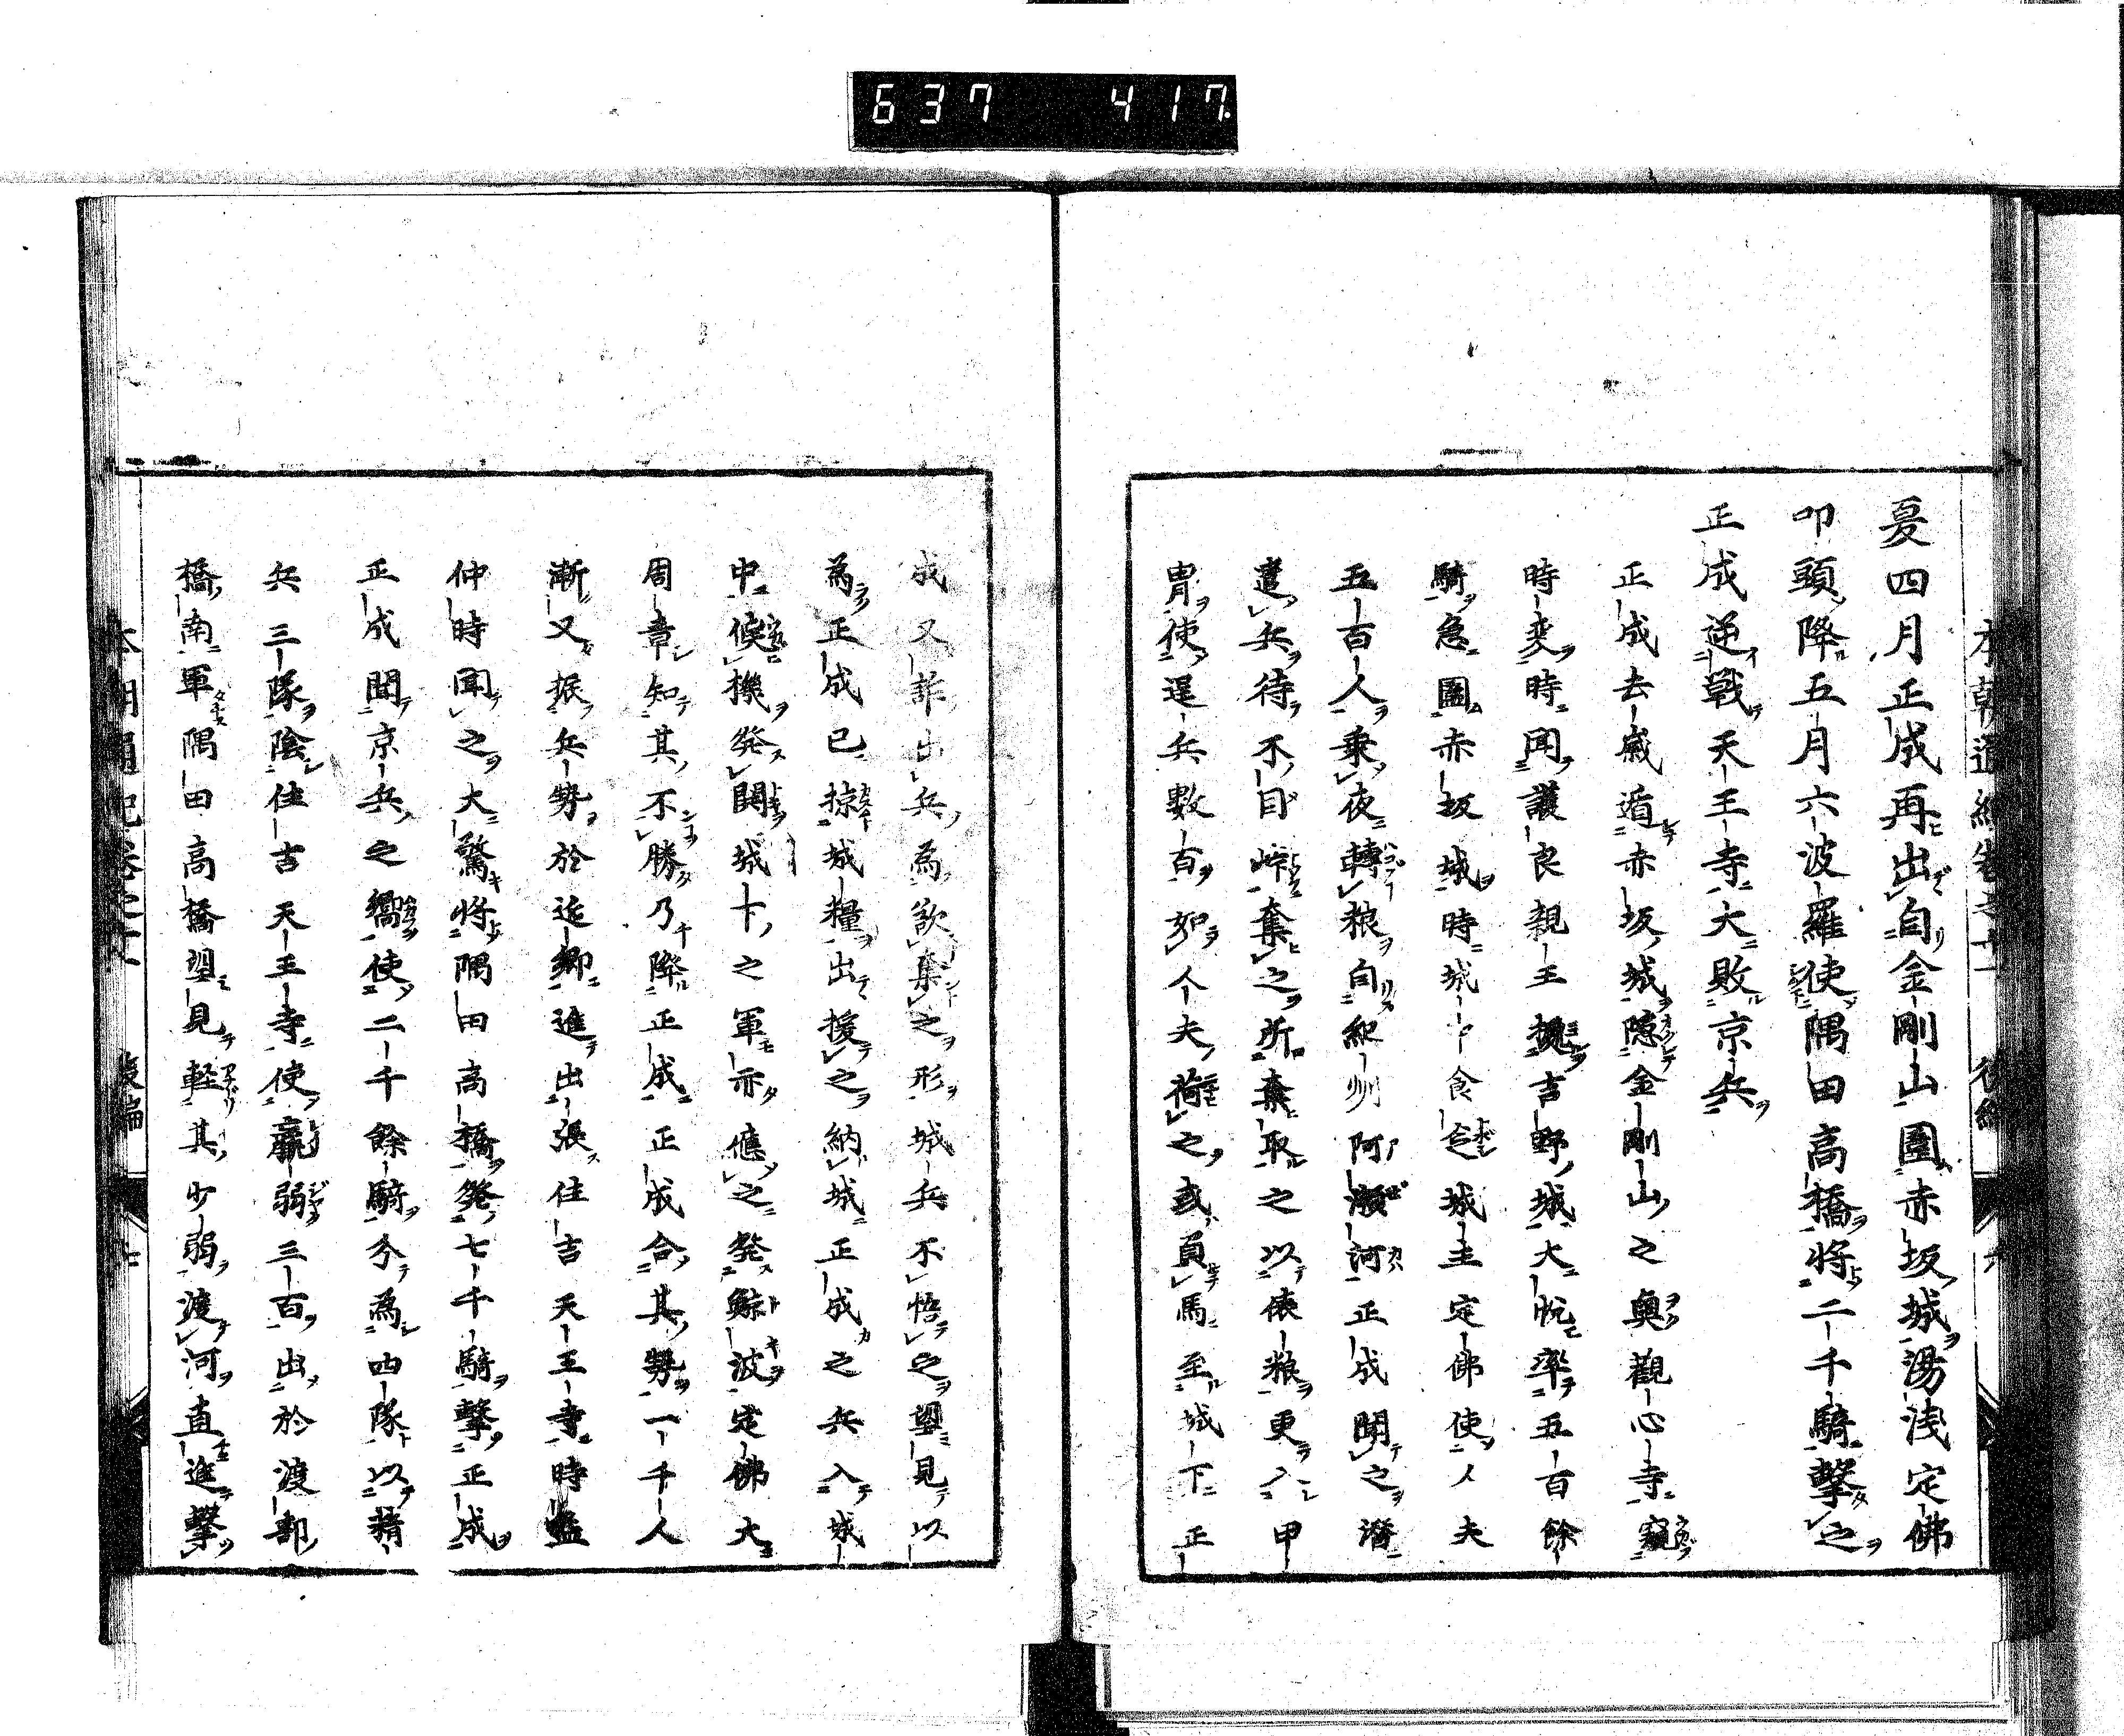 637 417
夏四月正成再出自金剛山圍赤坂城湯浅定佛
叩頭降五月六波羅使隅田高橋將二千騎擊之
正成逆戰天王寺大敗京兵
正成去歳遁赤坂城隠金剛山之奥觀心寺窺
時変時聞護良親王據吉野城大悦率五百餘
騎急圍赤坂城時城中食乏城主定佛使人夫
五百人乗夜轉粮自紀州阿瀬河正成聞之潜
遣兵待不目峠奪之所奪取之以俵粮更入甲
冑使逞兵數百如人夫荷之或負馬至城下正
成又詐出兵為欲奪之形城兵不悟之望見以
為正成已掠城糧出援之納城正成之兵入城
中候機発鬨城下之軍亦應之発鯨波定佛大
周章知其不勝乃降正成正成合其勢一千人
漸又振兵勢於近郷進出張住吉天王寺時益
仲時聞之大驚將隅田高橋発七千騎擊正成
正成聞京兵之嚮使二千餘騎分為四隊以精
兵三隊陰住吉天王寺使羸弱三百出於渡部
橋南軍隅田高橋望見軽其少弱渡河直進擊